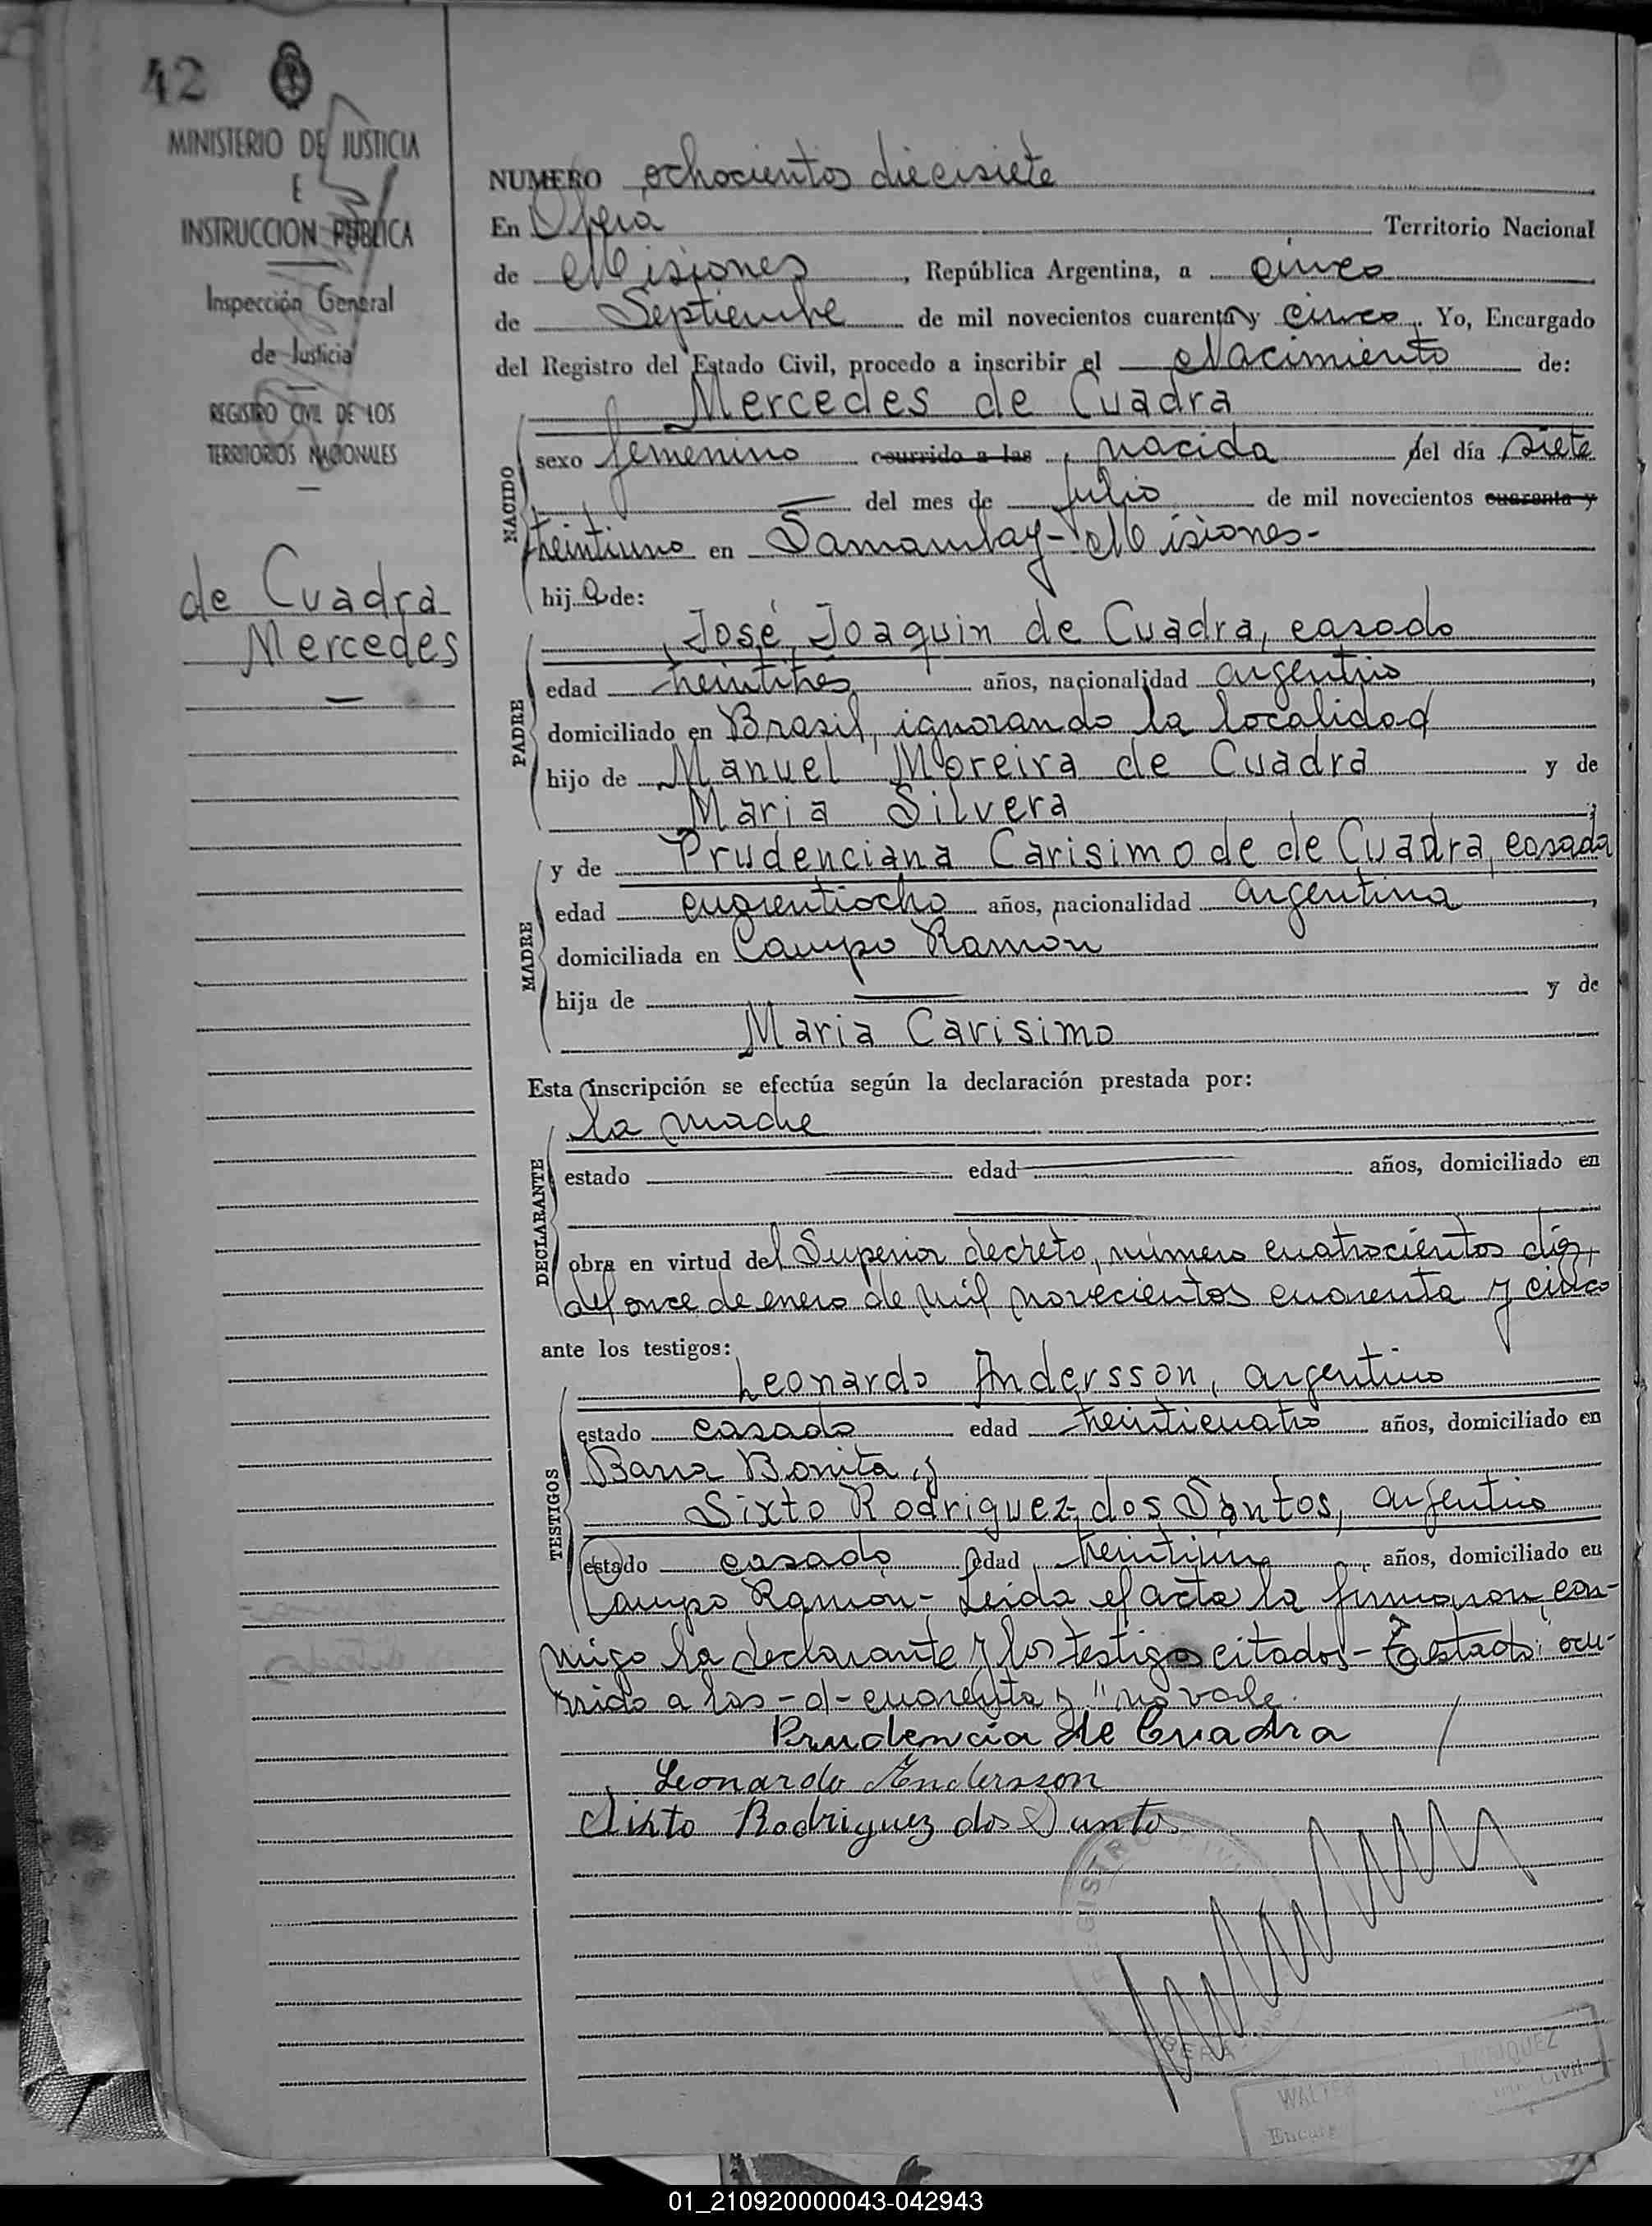 42
MINISTERIO DE JUSTICIA
E
INSTRUCCION PUBLICA
Inspección General
de Justicia
REGISTRO CIVIL DE LOS
TERRITORIOS NACIONALES
de Cuadra
Mercedes
NUMERO ochocientos diecisiete
En Oberá Territorio Nacional
de Misiones, República Argentina, a cinco
de Septiembre de mil novecientos cuarenta y cinco. Yo, Encargado
del Registro del Estado Civil, procedo a inscribir el Nacimiento de:
Mercedes de Cuadra
NACIDO
sexo femenino ocurrido a las, nacida del día siete
del mes de julio de mil novecientos cuarenta y
treintiuno en Samambay - Misiones -
hija de:
PADRE
José Joaquin de Cuadra, casado
edad treintitres años, nacionalidad argentino,
domiciliado en Brasil, ignorando la localidad
hijo de Manuel Moreira de Cuadra y de
Maria Silvera;
MADRE
y de Prudenciana Carisimo de de Cuadra, casada
edad cuarentiocho años, nacionalidad argentina,
domiciliada en Campo Ramón
hija de y de
Maria Carisimo
Esta inscripción se efectúa según la declaración prestada por:
DECLARANTE
la madre
estado edad años, domiciliado en
obra en virtud del Superior decreto, número cuatrocientos diez,
del once de enero de mil novecientos cuarenta y cinco
ante los testigos:
TESTIGOS
Leonardo Andersson, argentino
estado casado edad treinticuatro años, domiciliado en
Barra Bonita, y
Sixto Rodriguez dos Santos, argentino
estado casado edad treintiun, años, domiciliado en
Campo Ramón - Leida el acta la firmaron con-
migo la declarante y los testigos citados - Testado: "ocu-
rrido a las - d - cuarenta y" no vale.
Prudencia de Cuadra
Leonardo Andersson
Sixto Rodriguez dos Santos
REGISTRO CIVIL
OBERA
WALTER ENRIQUEZ
Civil
01_210920000043-042943